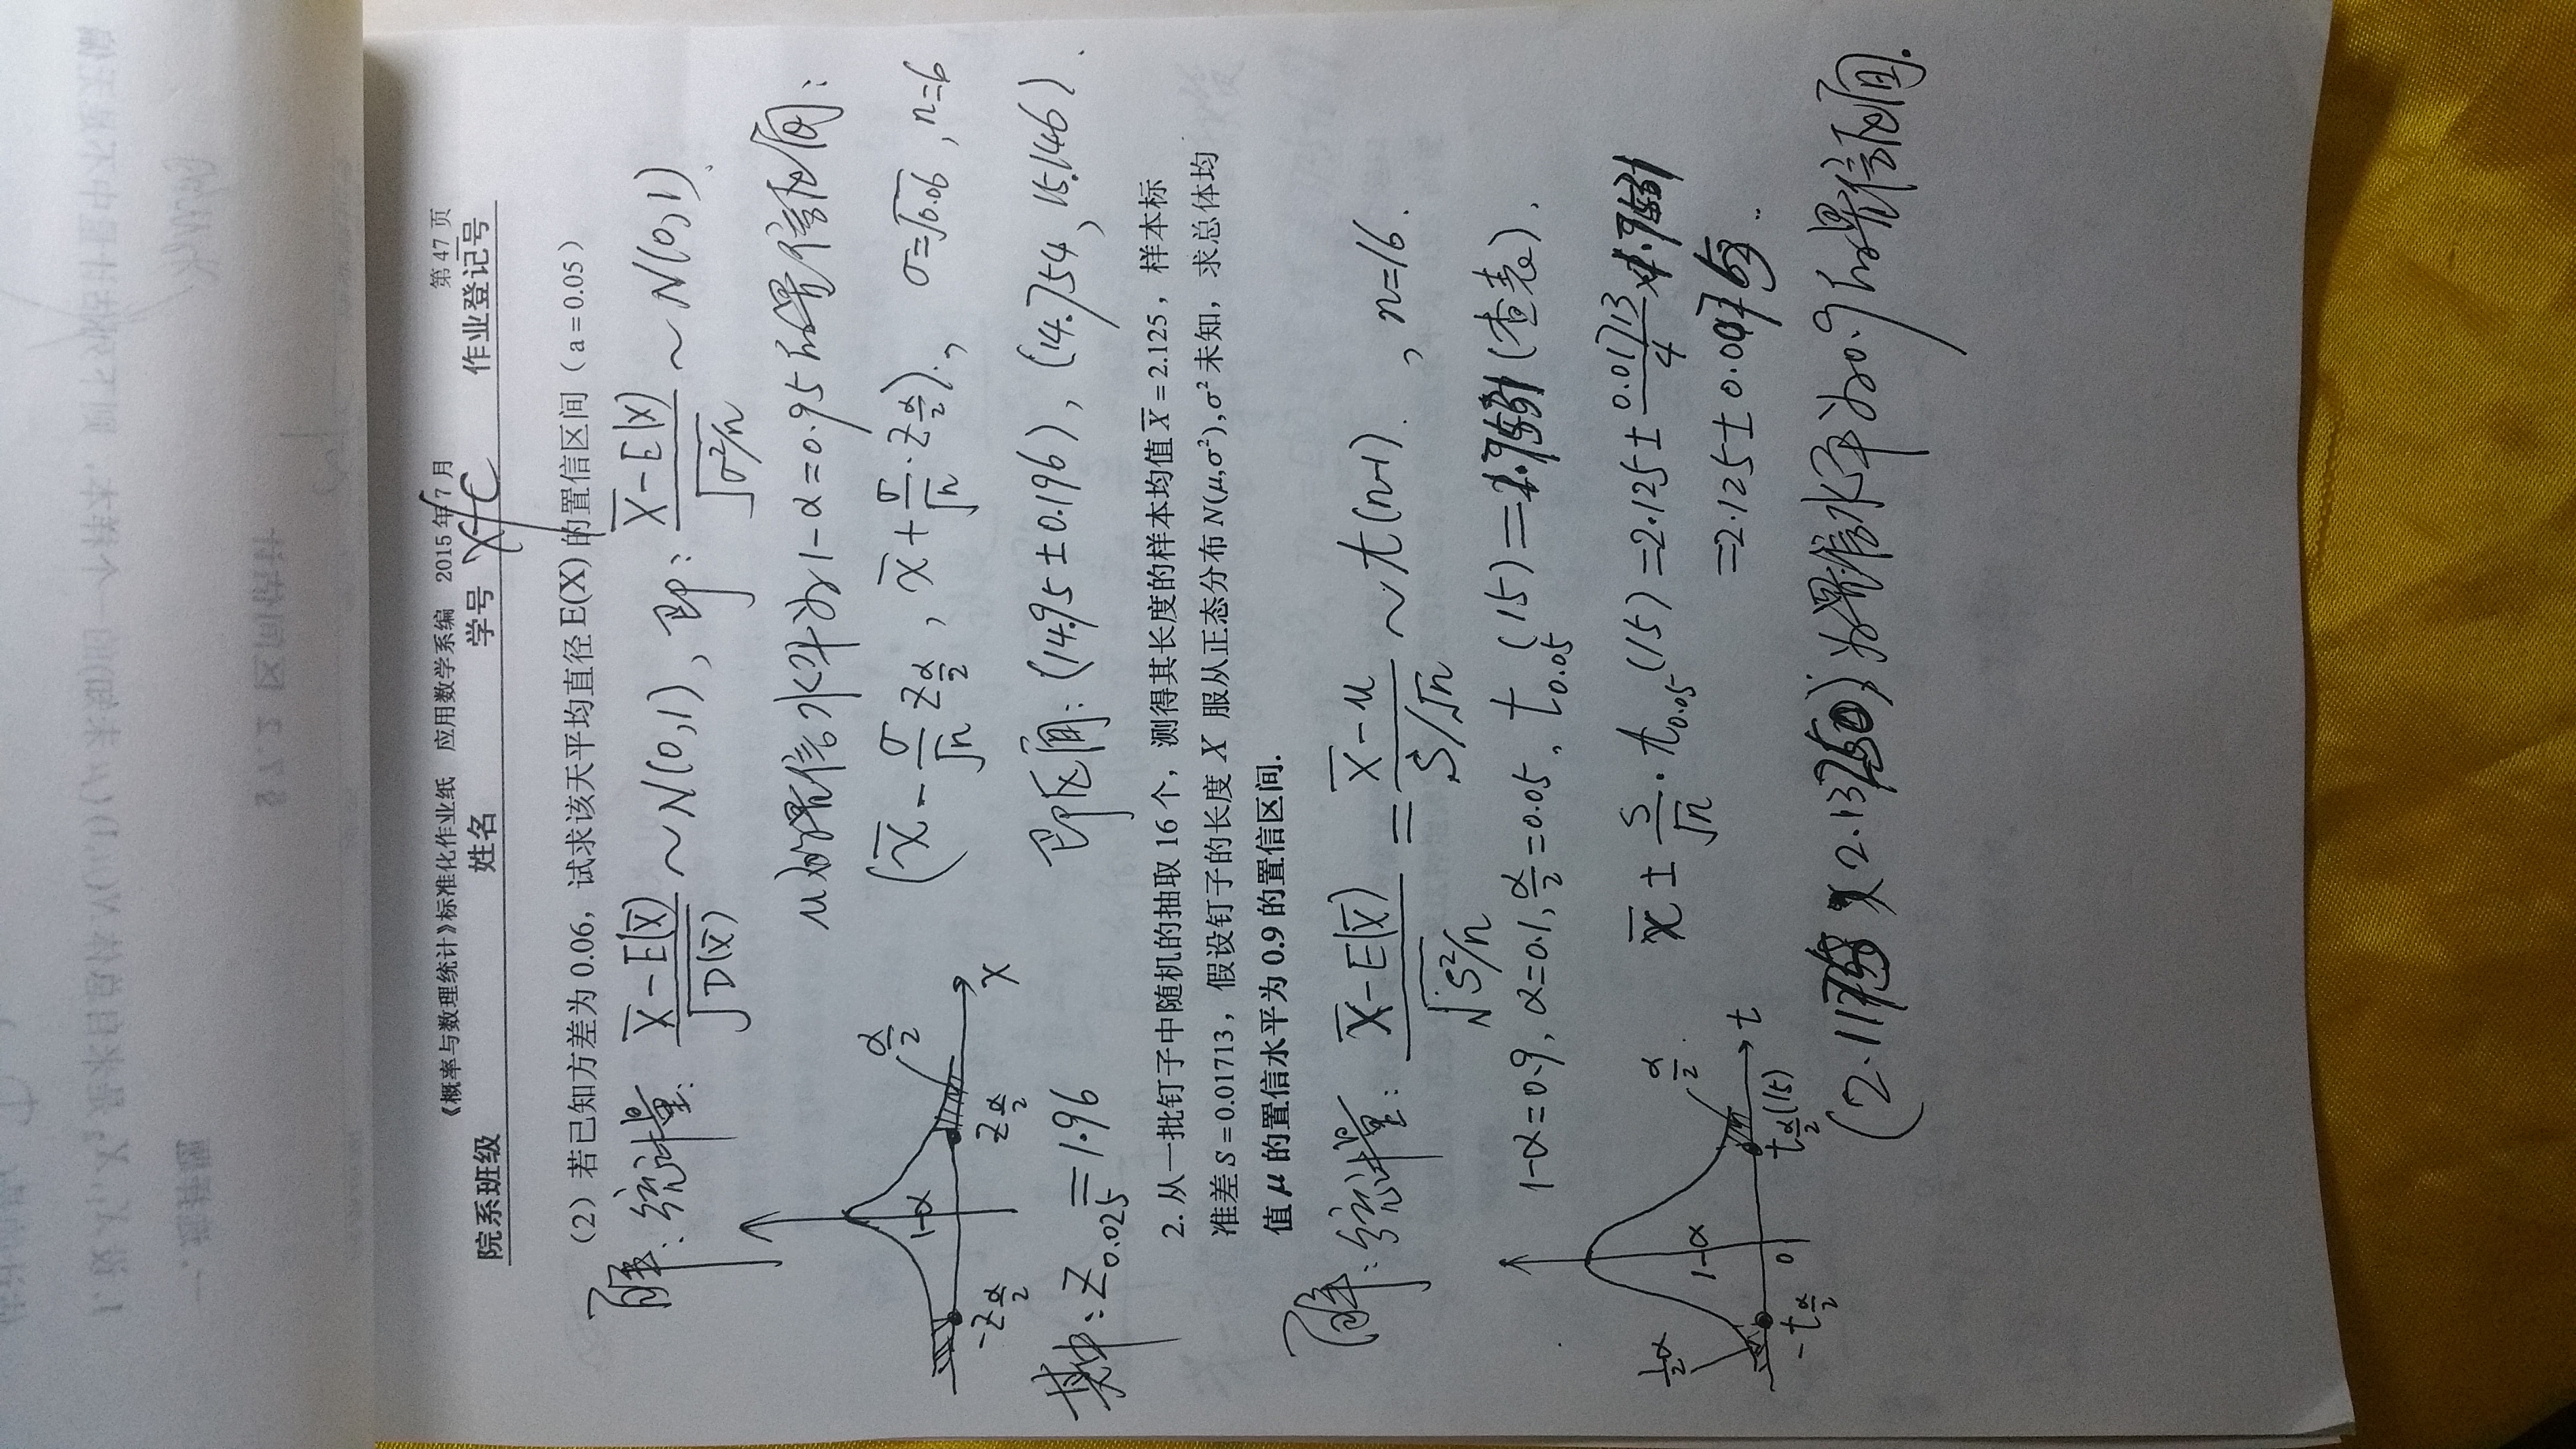 《概率与数理统计》标准化作业纸 应用数学系编 2015年7月 第47页
院系班级 姓名 学号 作业登记号
（2）若已知方差为0.06，试求该天平均直径E(X)的置信区间（a=0.05）
解：统计量：(X̄-E(X̄))/√D(X̄) ~N(0,1)，即：(X̄-E(X))/√(σ²/n) ~N(0,1)
μ的置信水平为1-α=0.95的置信区间：
1-α α/2
-Zα/2 Zα/2 X
(X̄-σ/√n Zα/2, X̄+σ/√n·Zα/2), σ=√0.06, n=6
其中：Z0.025=1.96 即区间：(14.95±0.196), (14.754, 15.146).
2.从一批钉子中随机的抽取16个，测得其长度的样本均值X̄=2.125，样本标
准差S=0.01713，假设钉子的长度X服从正态分布N(μ,σ²),σ²未知，求总体均
值μ的置信水平为0.9的置信区间.
解：统计量：(X̄-E(X̄))/√(S²/n) = (X̄-μ)/(S/√n) ~t(n-1), n=16.
1-α=0.9, α=0.1, α/2=0.05, t0.05(15)= (查表).
½α 1-α α/2
-tα/2 0 tα/2(15) t
X̄±S/√n·t0.05(15)=2.125±0.01713/4×
=2.125±0.007
为置信水平为0.9的置信区间.